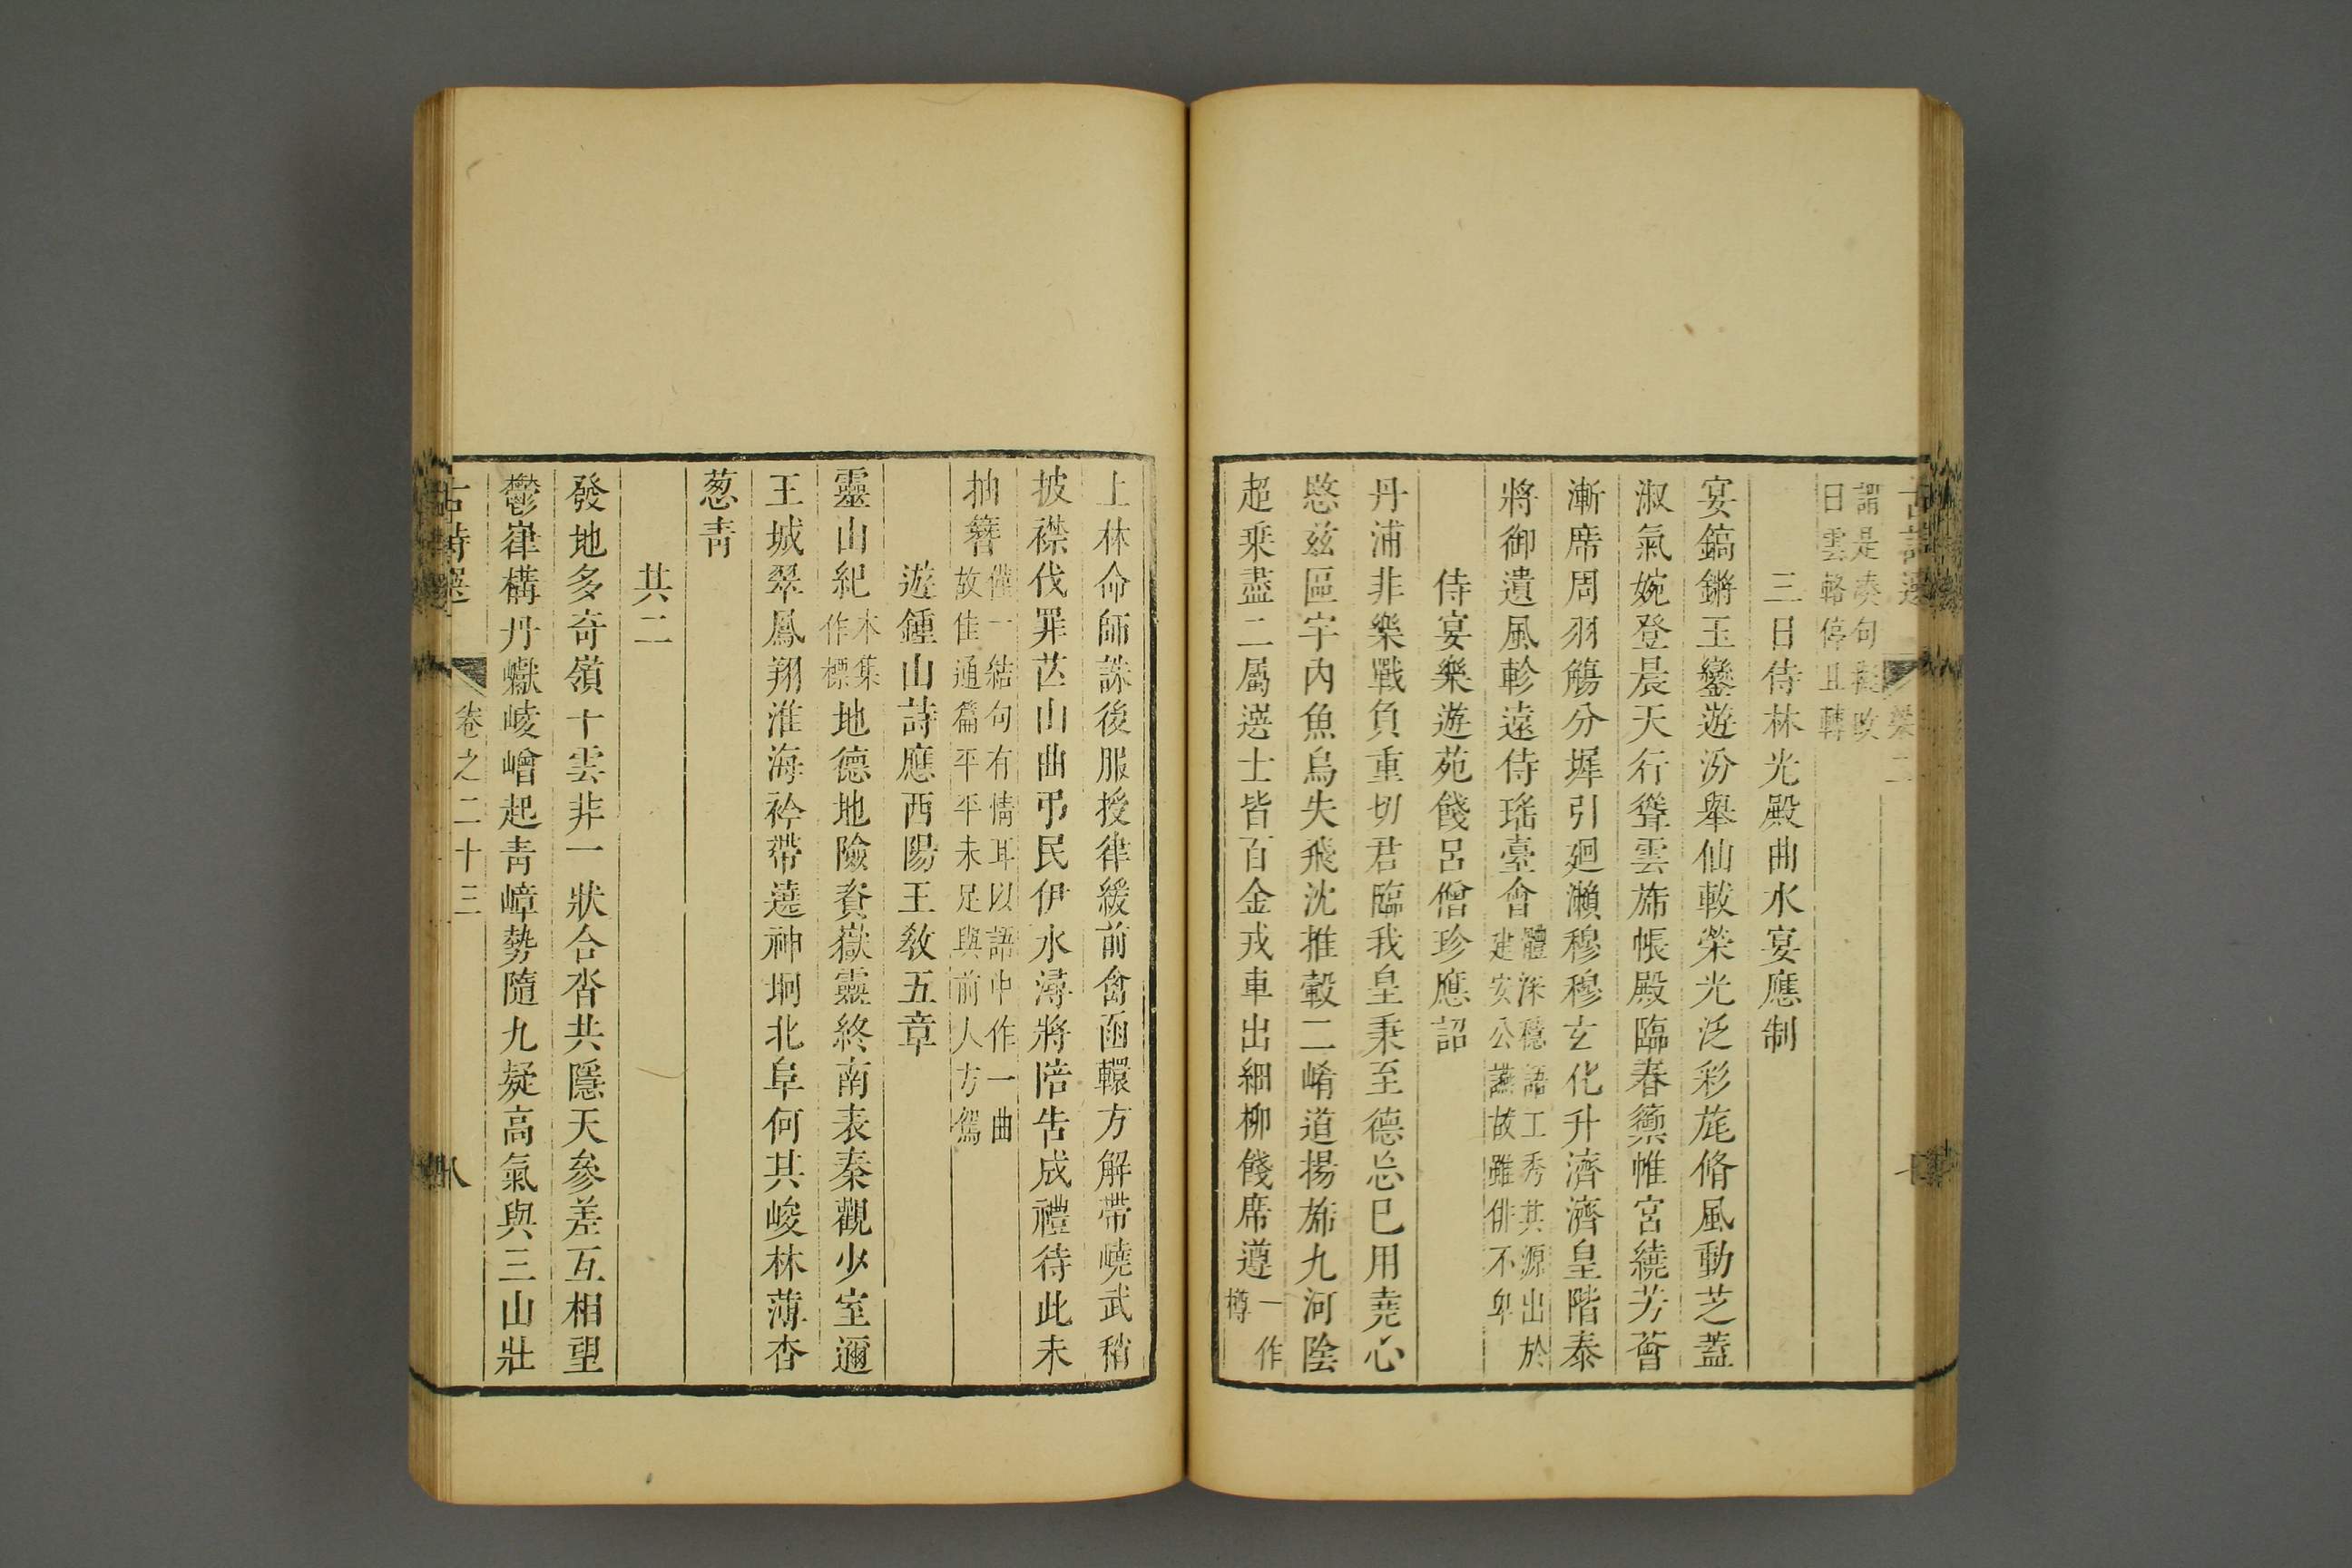 謂是湊句擬改
日雲輅停且轉
三日侍林光殿曲水宴應制
宴鎬鏘玉鑾遊汾舉仙軷榮光泛彩旄脩風動芝蓋
淑氣婉登晨天行聳雲旆帳殿臨春籞帷宮繞芳薈
漸席周羽觴分墀引迴瀨穆穆玄化升濟濟皇階泰
將御遺風軫遠侍瑤臺會體深穩語工秀其源出於
建安公讌故雖俳不卑
侍宴樂遊苑餞呂僧珍應詔
丹浦非樂戰負重切君臨我皇秉至德忘已用堯心
愍兹區宇內魚鳥失飛沈推轂二崤道揚旆九河陰
超乘盡二屬選士皆百金戎車出細柳餞席遵一作
樽
上林命師誅後服授律緩前禽函轘方解帶嶢武稍
披襟伐罪芒山曲弔民伊水潯將陪告成禮待此未
抽簪僅一結句有情耳以語中作一曲
故佳通篇平平未足與前人方駕
遊鍾山詩應西陽王敎五章
靈山紀本集
作標地德地險資嶽靈終南表秦觀少室邇
王城翠鳳翔淮海衿帶遶神坰北阜何其峻林薄杳
葱靑
其二
發地多奇嶺干雲非一狀合沓共隱天參差互相望
鬱嵂構丹巘崚嶒起靑嶂勢隨九疑高氣與三山壯
古詩選 卷之二十三 八